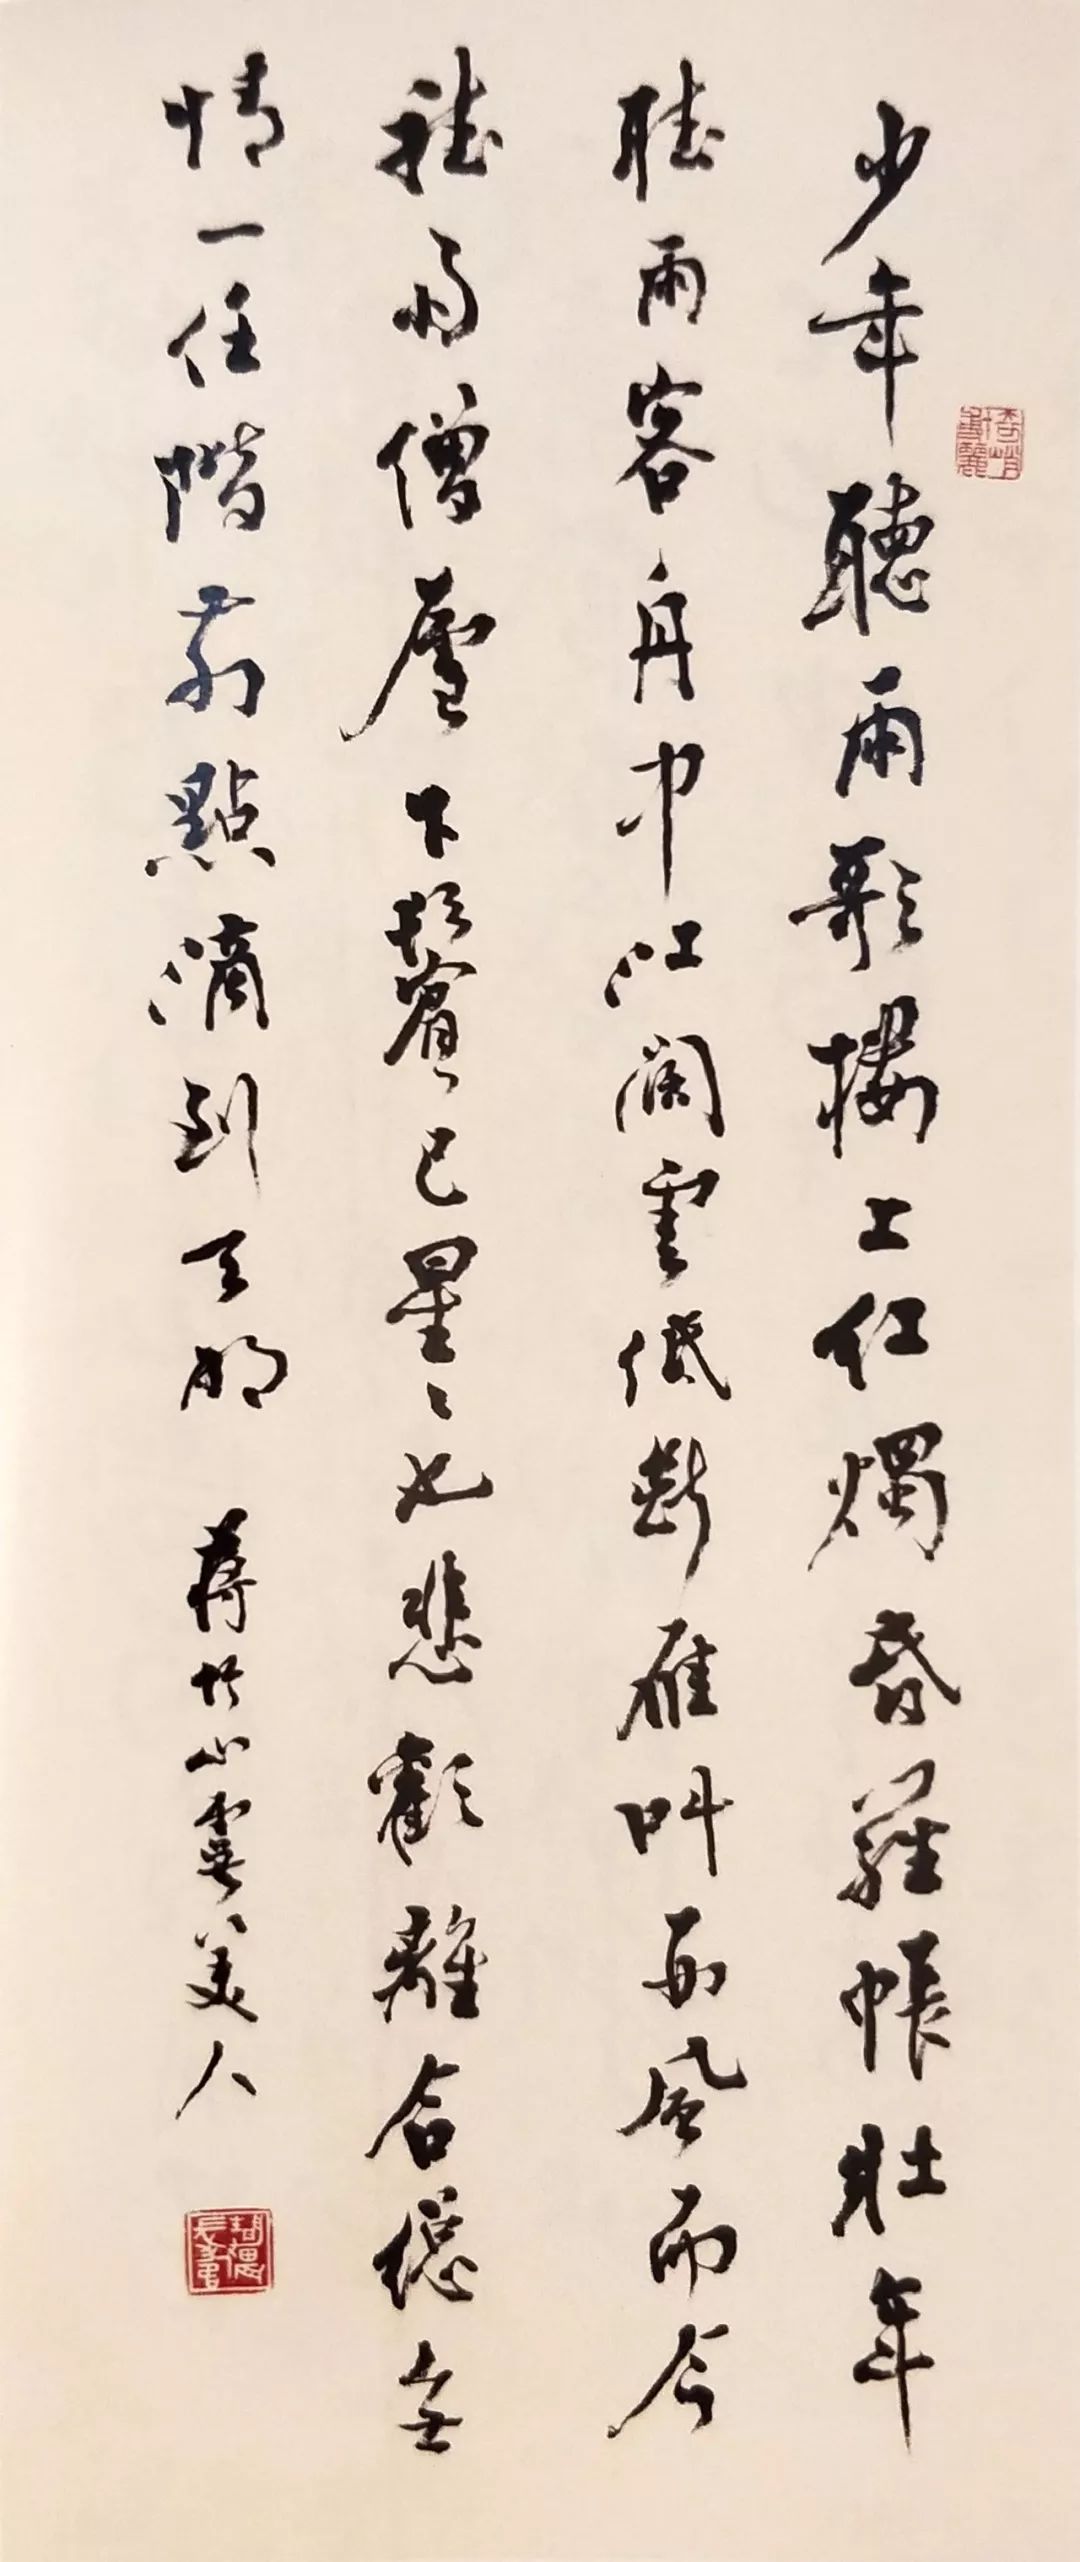 少年聽雨歌樓上紅燭昏羅帳壯年
聽雨客舟中江闊雲低斷雁叫西風而今
聽雨僧廬下鬢已星〻也悲歡離合總無
情一任階前點滴到天明
蔣竹山虞美人